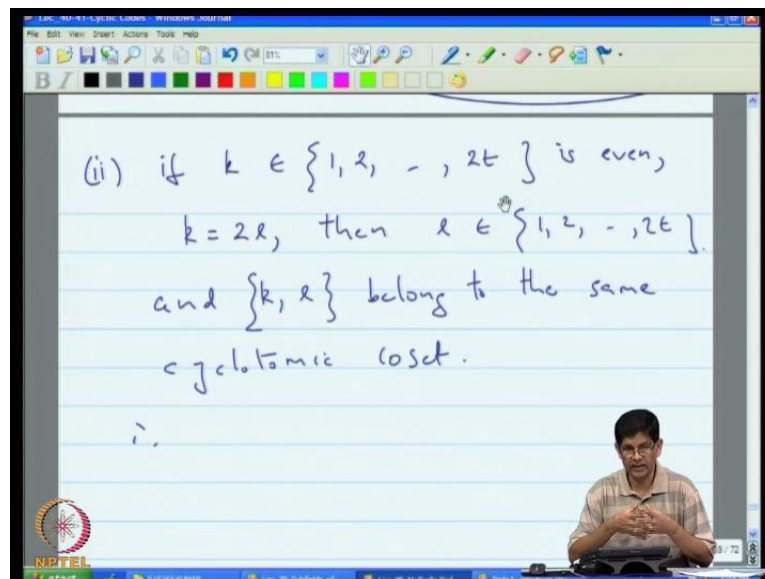 Lec 40-41-Cyclic Codes - Windows Journal
File Edit View Insert Actions Tools Help
81%
B I
(ii) if k ∈ {1, 2, - , 2t } is even,
k = 2l, then l ∈ {1, 2, - , 2t}.
and {k, l} belong to the same
cyclotomic coset.
i.
69 / 72
NPTEL
start